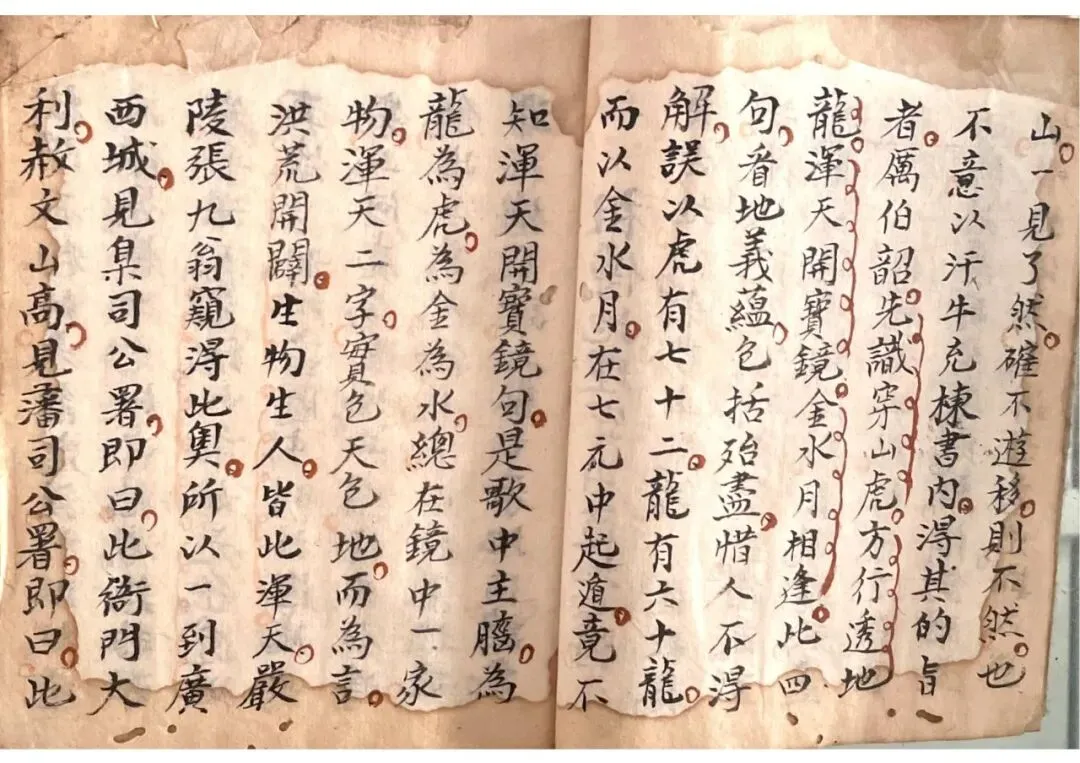 山一見了然確不遊移則不然也
不意以汗牛充棟書內得其的旨
者厲伯韶先識穿山虎方行透地
龍渾天開寶鏡金水月相逢此四
句看地義蘊包括殆盡惜人不得
解誤以虎有七十二龍有六十龍
而以金水月在七元中起遁竟不
知渾天開寶鏡句是歌中主腦為
龍為虎為金為水總在鏡中一家
物渾天二字實包天包地而為言
洪荒開闢生物生人皆此渾天嚴
陵張九翁窺得此奧所以一到廣
西城見臬司公署即曰此衙門大
利赦文山高見藩司公署即曰此